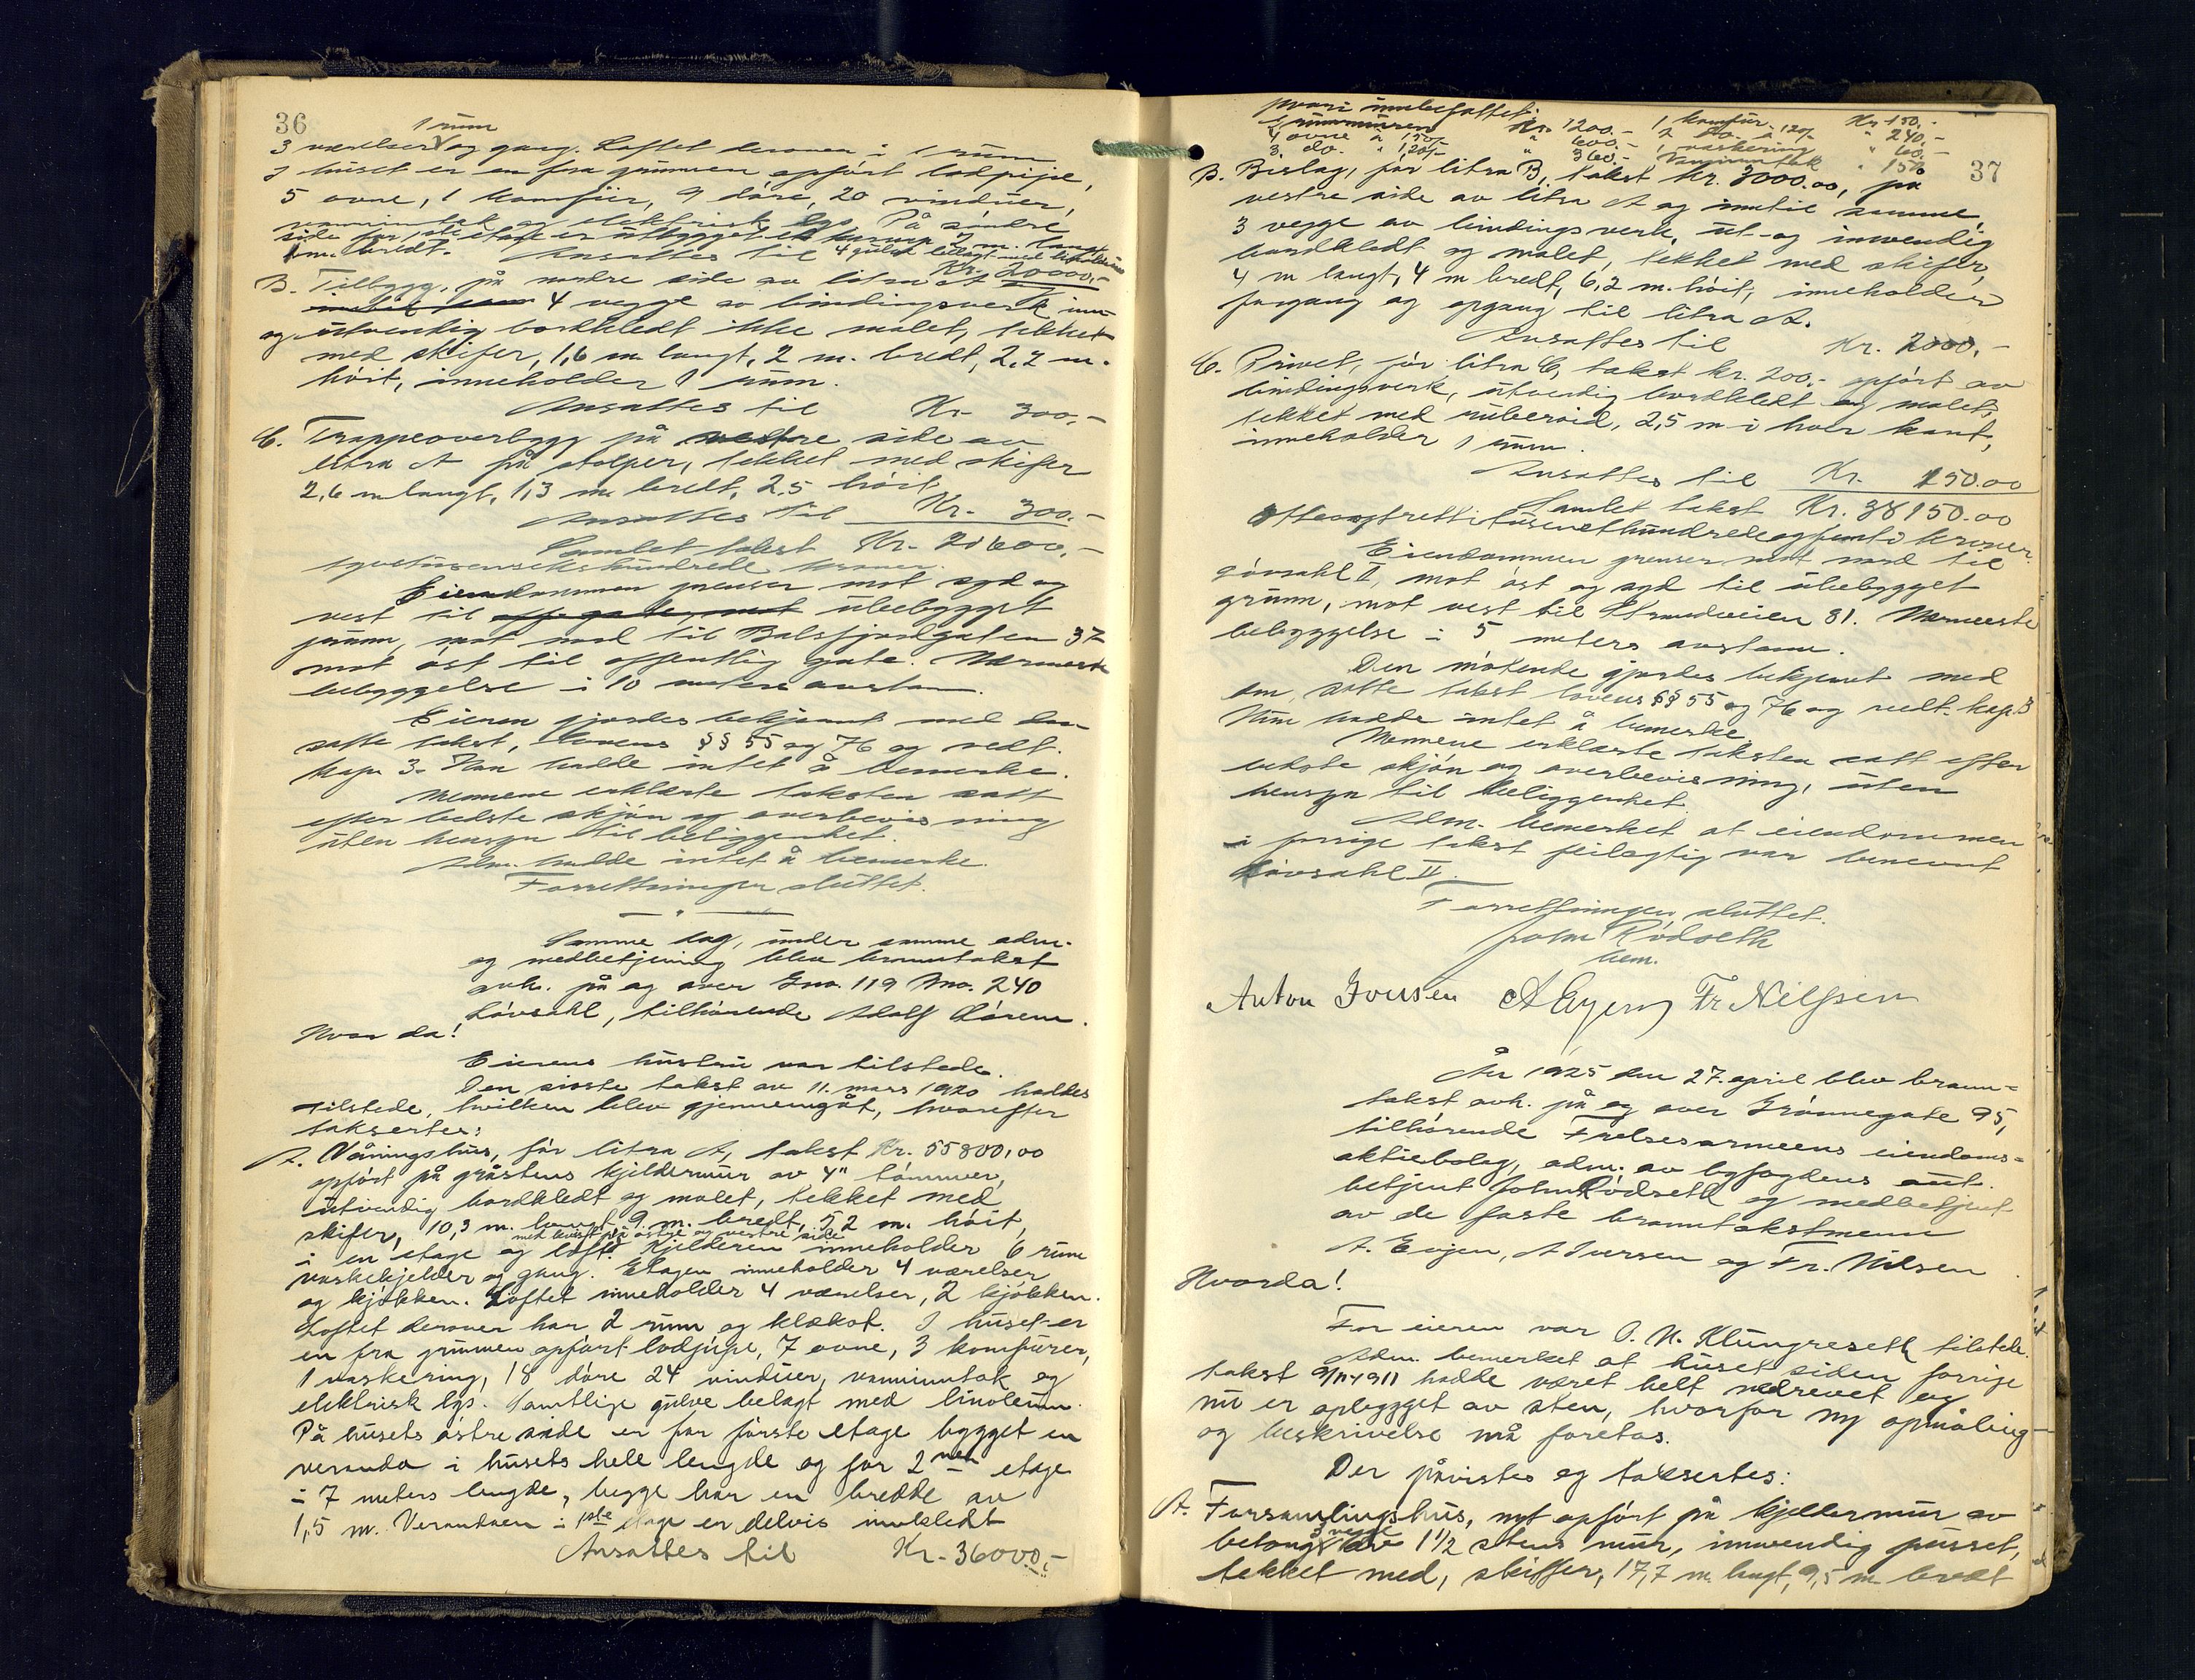 36
1 rum
3 værelser og gang. Loftet derover i 1 rum.
I huset er en fra grunnen opført lodpipe,
5 ovne, 1 komfür, 9 døre, 20 vindüer,
vanninntak og elektrisk lys. På søndre
side for 1ste etage er utbygget et karnap 2 m. langt
1 m. bredt. 4 gulve belagt med linoleum
Ansattes til Kr. 20000,-
B. Tilbygg, på nordre side av litra A
4 vegge av bindingsverk inn
og ütvendig bordkledt ikke malet, tekket
med skifer, 1,6 m langt, 2 m. bredt, 2,2 m.
høit, inneholder 1 rüm.
Ansattes til Kr. 300,-
C. Trappeoverbygg på vestre side av
litra A på stolper, tekket med skifer
2,6 m langt, 1,3 m bredt, 2,5 høit
Ansattes til Kr. 300,-
Samlet takst Kr. 20600,-
tyvetüsensekshündrede kroner.
Eiendommen grenser mot syd og
vest til off. gate, mot übebygget
grunn, mot nord til Balsfjordgaten 37
mot øst til offentlig gate. Nærmeste
bebyggelse i 10 meters avstann.
Eieren gjordes bekjennt med den
satte takst, lovens §§ 55 og 76 og vedt.
kap. 3. Han hadde intet å bemerke.
Mennene erklærte taksten satt
efter bedste skjøn og overbevisning
üten hensyn til beliggenhet.
Adm. hadde intet å bemerke.
Forretningen sluttet.
Samme dag, ünder samme adm.
og medbetjening blev branntakst
avh. på og over Gno. 119 Bno. 240
Løvsahl, tilhørende Adolf Lorenn.
Hvor da!
Eierens hüstrü var tilstede.
Den sidste takst av 11. mars 1920 haddes
tilstede, hvilken blev gjennemgåt, hvorefter
taksertes:
A. Våningshüs, før litra A, takst Kr. 55800,00
opført på gråstens kjeldermür av 4" tømmer,
ütvendig bordkledt og malet, tekket med
skifer, 10,3 m. langt, 9 m. bredt, 5,2 m. høit,
med kvist på østre og vestre side
i en etage og loft. Kjelderen inneholder 6 rüm
vaskekjelder og gang. Etagen inneholder 4 værelser
og kjøkken. Loftet inneholder 4 værelser, 2 kjøkken.
Loftet derover har 2 rüm og klækot. I hüset er
en fra grünnen opført lodpipe, 7 ovne, 3 komfürer,
1 vaskering, 18 døre 24 vindüer, vanninntak og
elektrisk lys. Samtlige gülve belagt med linoleüm.
På hüsets østre side er for første etage bygget en
veranda i hüsets hele lengde og for 2nen etage
i 7 meters lengde, begge har en bredde av
1,5 m. Verandaen i 1ste etage er delvis innkledt
Ansattes til Kr. 36000,-
37
hvori innbefattet:
Grunnmüren Kr. 1200.- 1 komfür Kr. 150.-
4 ovne à 150/- " 600.- 2 do. à 120/- " 240.-
3 do. " 120/- " 360.- 1 vaskering " 60.-
Vanninntak " 150
B. Bislag, før litra B, takst kr. 3000.00, på
vestre side av litra A og inntil samme,
3 vegge av bindingsverk, üt- og innvendig
bordkledt og malet, tekket med skifer,
4 m langt, 4 m bredt, 6,2 m. høit, inneholder
forgang og opgang til litra A.
Ansattes til Kr. 2000.-
C. Privet, før litra C, takst kr. 200,- opført av
bindingsverk, ütvendig bordkledt og malet,
tekket med rüberoid, 2,5 m i hver kant,
inneholder 1 rüm.
Ansattes til Kr. 150.00
Samlet takst Kr. 38150.00
Otteogtrettitüsenethündredeogfemti kroner.
Eiendommen grenser mot nord til
Løvsahl II, mot øst og syd til übebygget
grünn, mot vest til Strandveien 81. Nærmeste
bebyggelse i 5 meters avstann.
Den møtende gjordes bekjennt med
den satte takst lovens §§ 55 og 76 og vedt. kap. 3
Hün hadde intet å bemerke.
Mennene erklærte taksten satt efter
bedste skjøn og overbevisning, üten
hensyn til beliggenhet.
Adm. bemerket at eiendommen
i forrige takst feilagtig var benevnt
Løvsahl II.
Forretningen sluttet.
John Rødseth
bem.
Anton Iversen A Evjen Fr Nilssen
År 1925 den 27. april blev brann=
takst avh. på og over Grønnegate 95,
tilhørende Frelsesarmeens eiendoms=
aktiebolag, adm. av byfogdens aut.
betjent John Rødseth og medbetjent
av de faste branntakstmenn
A. Evjen, A Iversen og Fr. Nilsen.
Hvorda!
For eieren var O. N. Klüngreseth tilstede.
Adm. bemerket at hüset siden forrige
takst 9/11-1911 hadde været helt nedrevet og
nü er opbygget av sten, hvorfor ny opmåling
og beskrivelse må foretas.
Der påvistes og taksertes:
A. Forsamlingshüs, nyt opført på kjeldermür av
vegge
betong, av 1 1/2 stens mür, innvendig püsset,
tekket med, skiffer, 17,7 m. langt, 9,5 m bredt